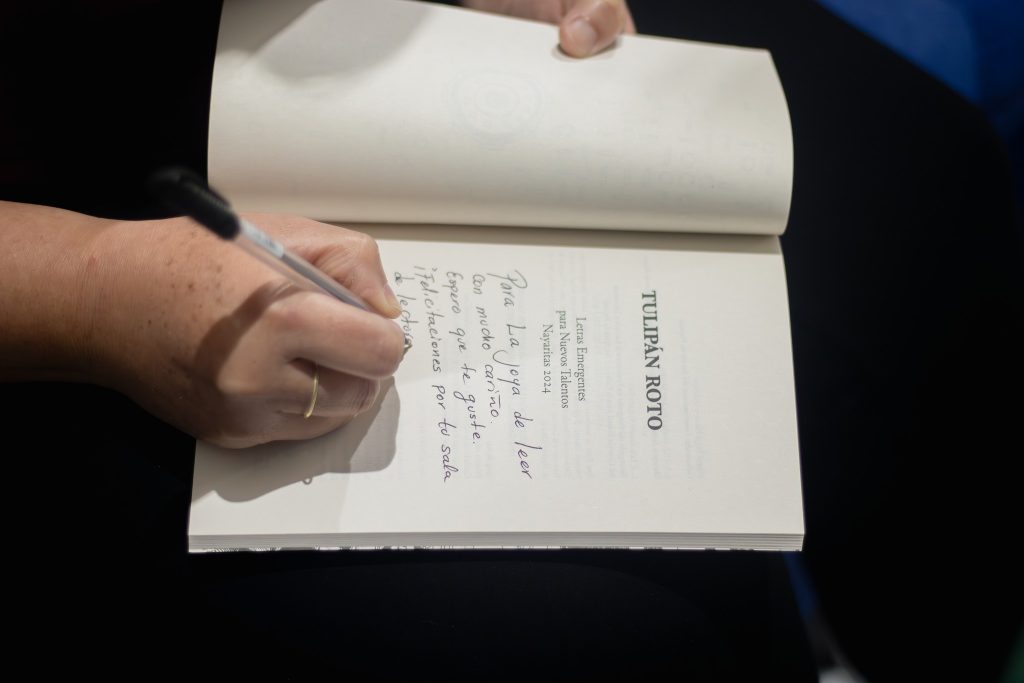 TULIPÁN ROTO
Letras Emergentes
para Nuevos Talentos
Nayaritas 2024
Para La Joya de leer
con mucho cariño.
Espero que te guste.
¡Felicitaciones por tu sala
de lectora